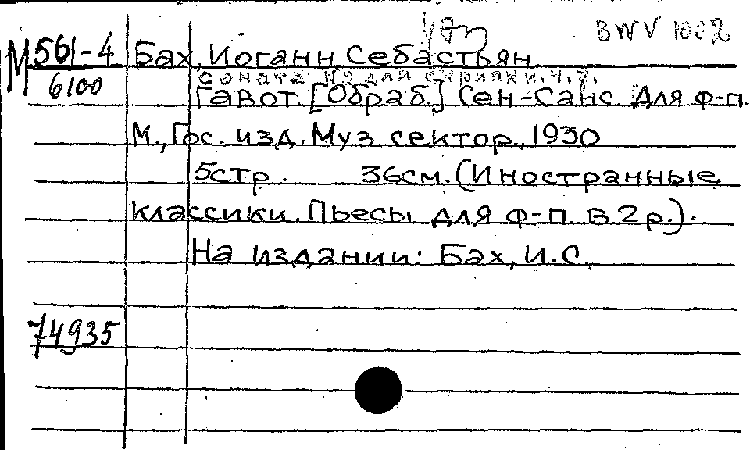 BWV 1002
М 561-4 Бах, Иоганн Себастьян
6100 Соната №2 для скрипки. Ч. 7.
Гавот. [Обраб.] Сен-Санс. Для ф-п.
М., Гос. изд. Муз сектор, 1930
5стр. 36см. (Иностранные
классики. Пьесы для ф-п. в 2 р.).
На издании: Бах, И.С.
74935